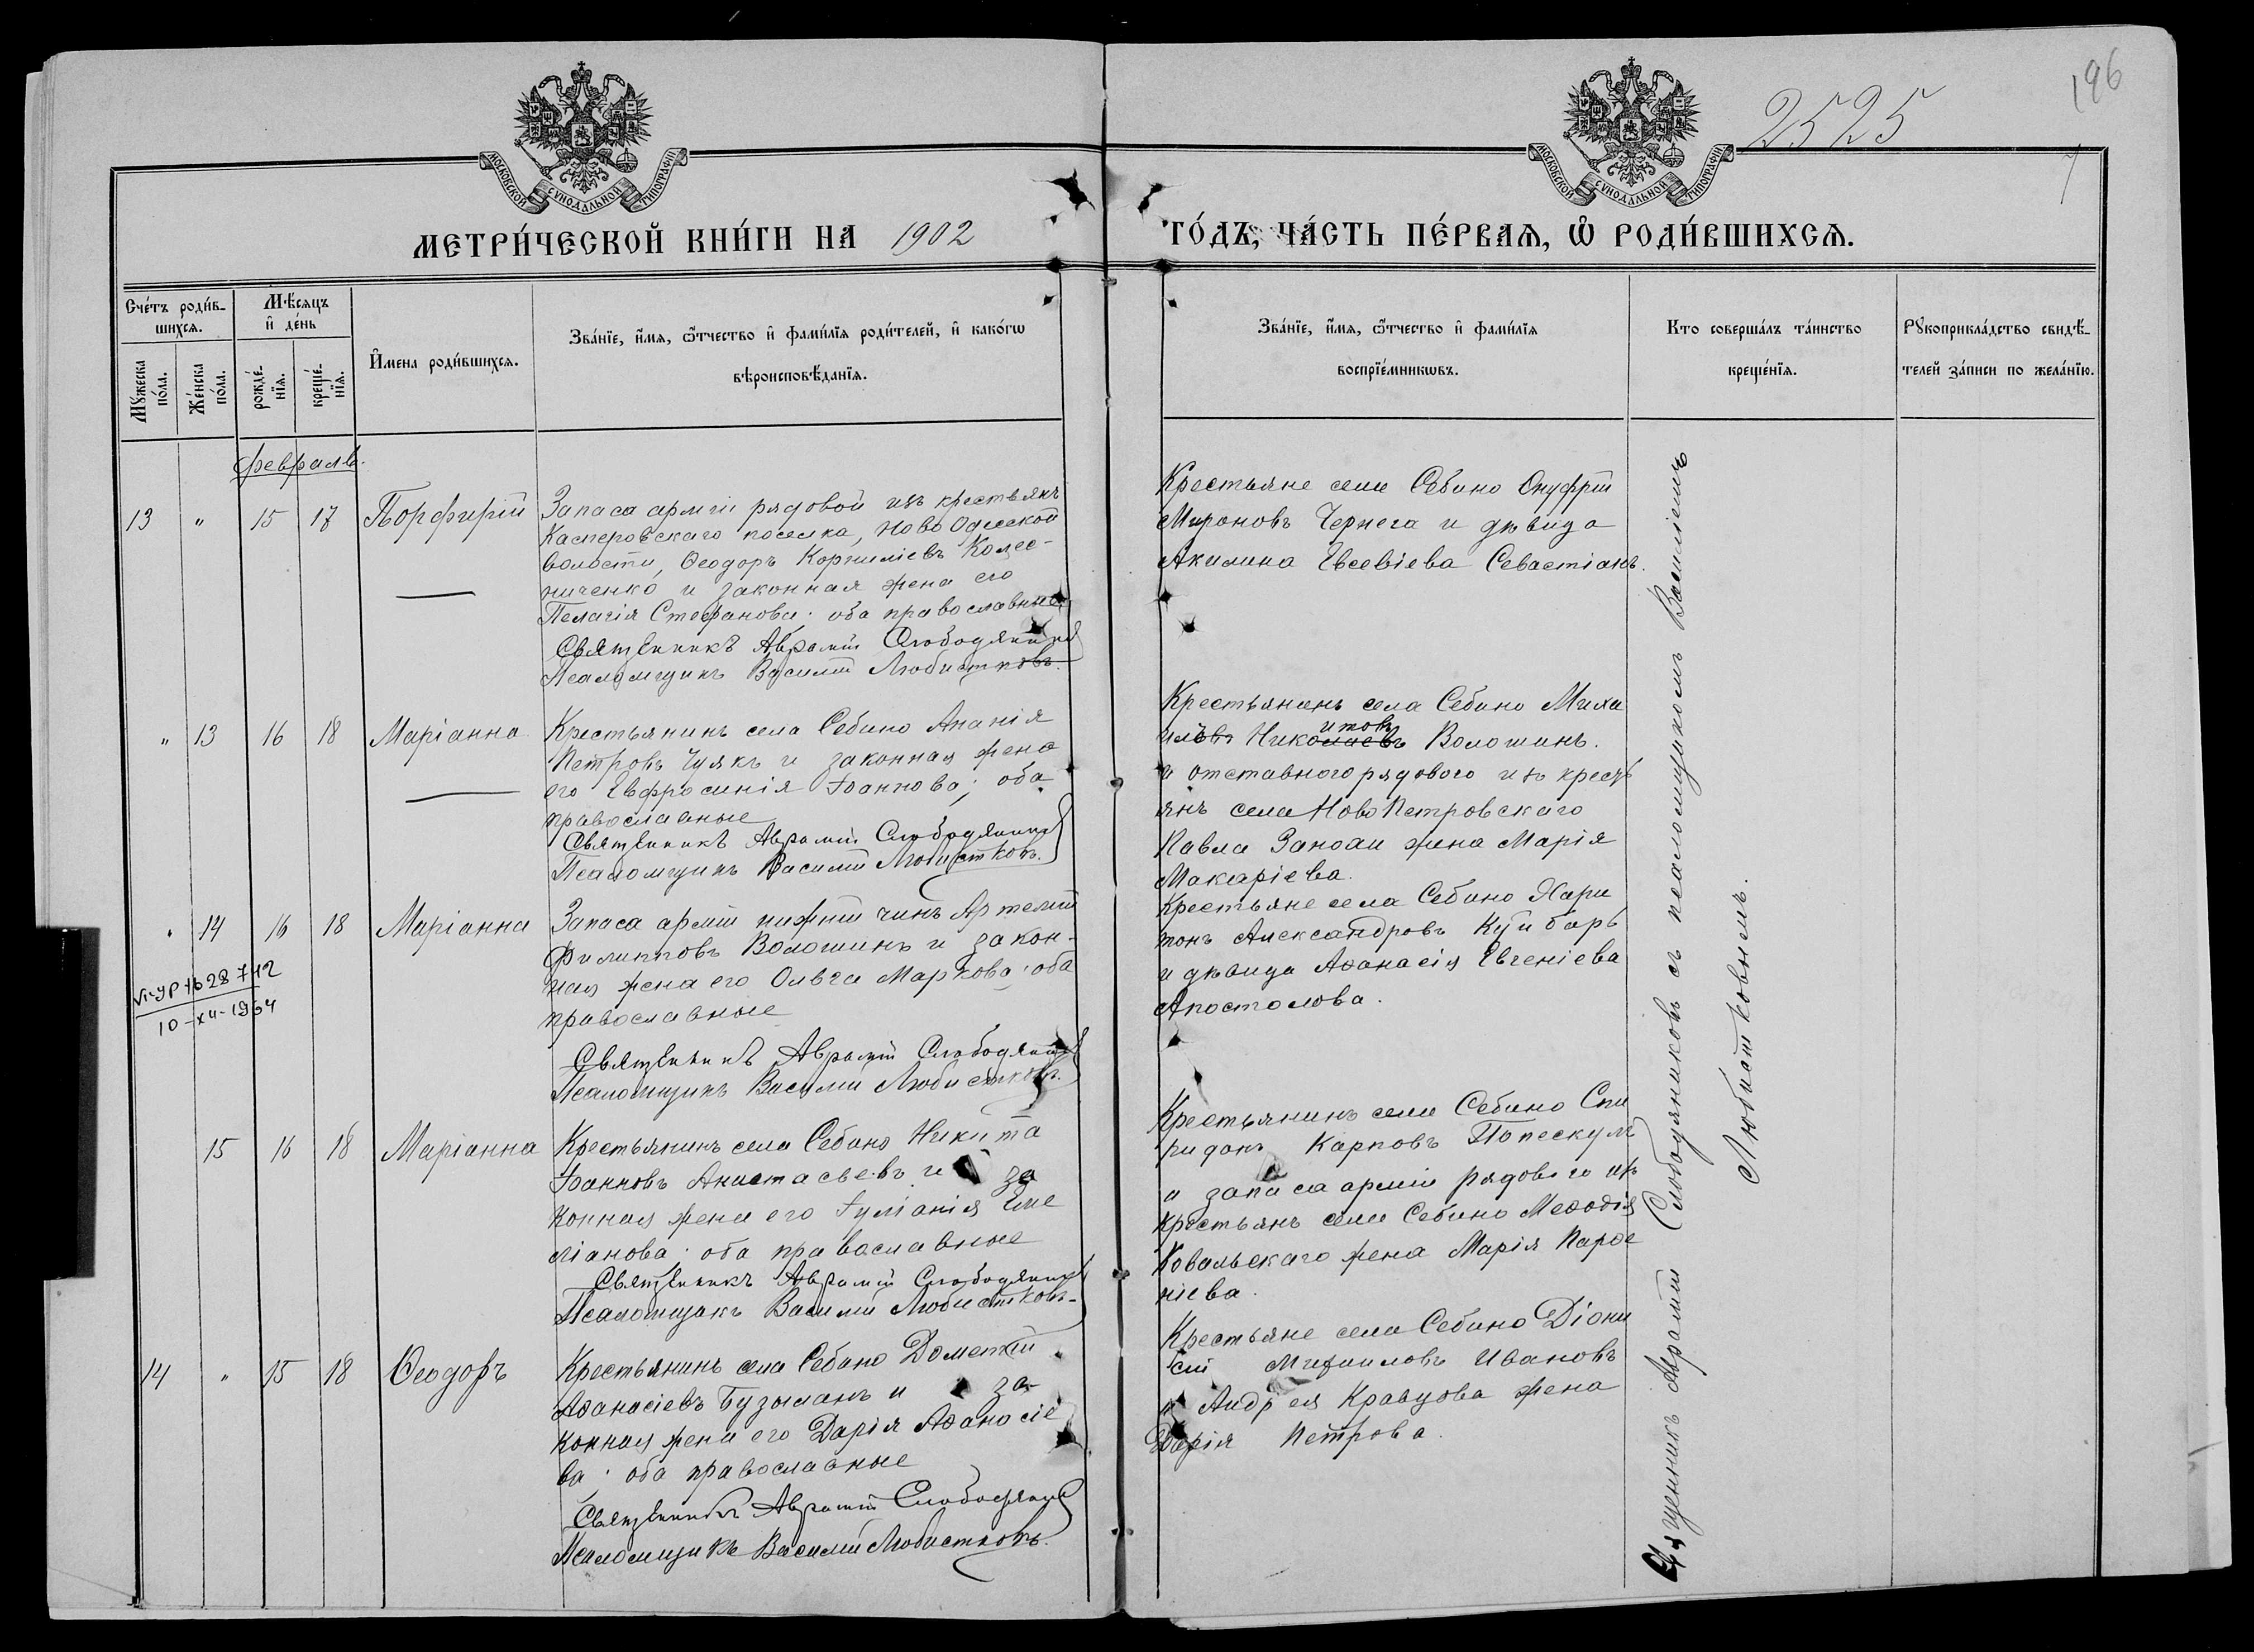 2525
196
7
МОСКОВСКОЙ СѴНОДАЛЬНОЙ ТИПОГРАФІИ
МОСКОВСКОЙ СѴНОДАЛЬНОЙ ТИПОГРАФІИ
МЕТРИ́ЧЕСКОЙ КНИ́ГИ НА 1902
ГО́ДЪ, ЧА́СТЬ ПЕ́РВАѦ, Ѽ РОДИ́ВШИХСѦ.
Сче́тъ роди́в-
шихсѧ.
Мѣ́сѧцъ
и҆ де́нь
Мꙋ́жеска
по́ла.
Же́нска
по́ла.
рожде́-
нїѧ.
креще́-
нїѧ.
И҆мена роди́вшихсѧ.
Зва́нїе, и҆́мѧ, ѻ҆́тчество и҆ фами́лїѧ роди́телей, и҆ како́гѡ
вѣроисповѣ́данїѧ.
Зва́нїе, и҆́мѧ, ѻ҆́тчество и҆ фами́лїѧ
воспрїе́мникѡвъ.
Кто соверша́лъ та́инство
креще́нїѧ.
Рꙋкоприкла́дство свидѣ́-
телей за́писи по жела́нїю.
Февраль.
13 " 15 17 Порфирій
Запаса арміи рядовой изъ крестьянъ
Касперовскаго поселка, Ново Одесской
волости, Ѳеодоръ Корниліевъ Колес-
ниченко и законная жена его
Пелагія Стефанова; оба православные
Священникъ Аврамій Слободяник
Псаломщикъ Василій Любистковъ.
Крестьяне села Себино Онуфрій
Мироновъ Чернега и дѣвица
Акилина Евсевіева Севастіанъ.
" 13 16 18 Маріанна
Крестьянинъ села Себино Ананія
Петровъ Чуякъ и законная жена
его Евфросинія Іоаннова; оба
православные
Священникъ Аврамій Слободяник
Псаломщикъ Василій Любистковъ.
Крестьянинъ села Себино Миха
илъ Николаевъ итовъ Волошинъ.
и отставного рядового изъ кресть
янъ села Ново Петровскаго
Павла жена Марія
Макаріева.
" 14 16 18 Маріанна
Запаса арміи нижній чинъ Артемій
Филипповъ Волошинъ и закон-
ная жена его Ольга Маркова; оба
православные
Священникъ Аврамій Слободяник
Псаломщикъ Василій Любистковъ.
28742
10-XII-1954
Крестьяне села Себино Хари
тонъ Александровъ Куйбарь
и дѣвица Аѳанасія Евгеніева
Апостолова.
15 16 18 Маріанна
Крестьянинъ села Себино Никита
Іоанновъ Анастасьевъ и за
конная жена его Іуліанія Еме
ліанова; оба православные
Священникъ Аврамій Слободяник
Псаломщикъ Василій Любистковъ.
Крестьянинъ села Себино Спи
ридонъ Карповъ Попескулъ
и запаса арміи рядового изъ
крестьянъ села Себино Меѳодія
Ковальскаго жена Марія Парѳе
ніева.
14 " 15 18 Ѳеодоръ
Крестьянинъ села Себино Дометій
Аѳанасіевъ Бузыланъ и за-
конная жена его Дарія Аѳанасіе
ва; оба православные
Священникъ Аврамій Слободяник
Псаломщикъ Василій Любистковъ.
Крестьяне села Себино Діони
сій Михаиловъ Ивановъ
и Андрея Кравцова жена
Дарія Петрова.
Священникъ Аврамій Слободяниковъ съ псаломщикомъ Василіемъ
Любистковнемъ.